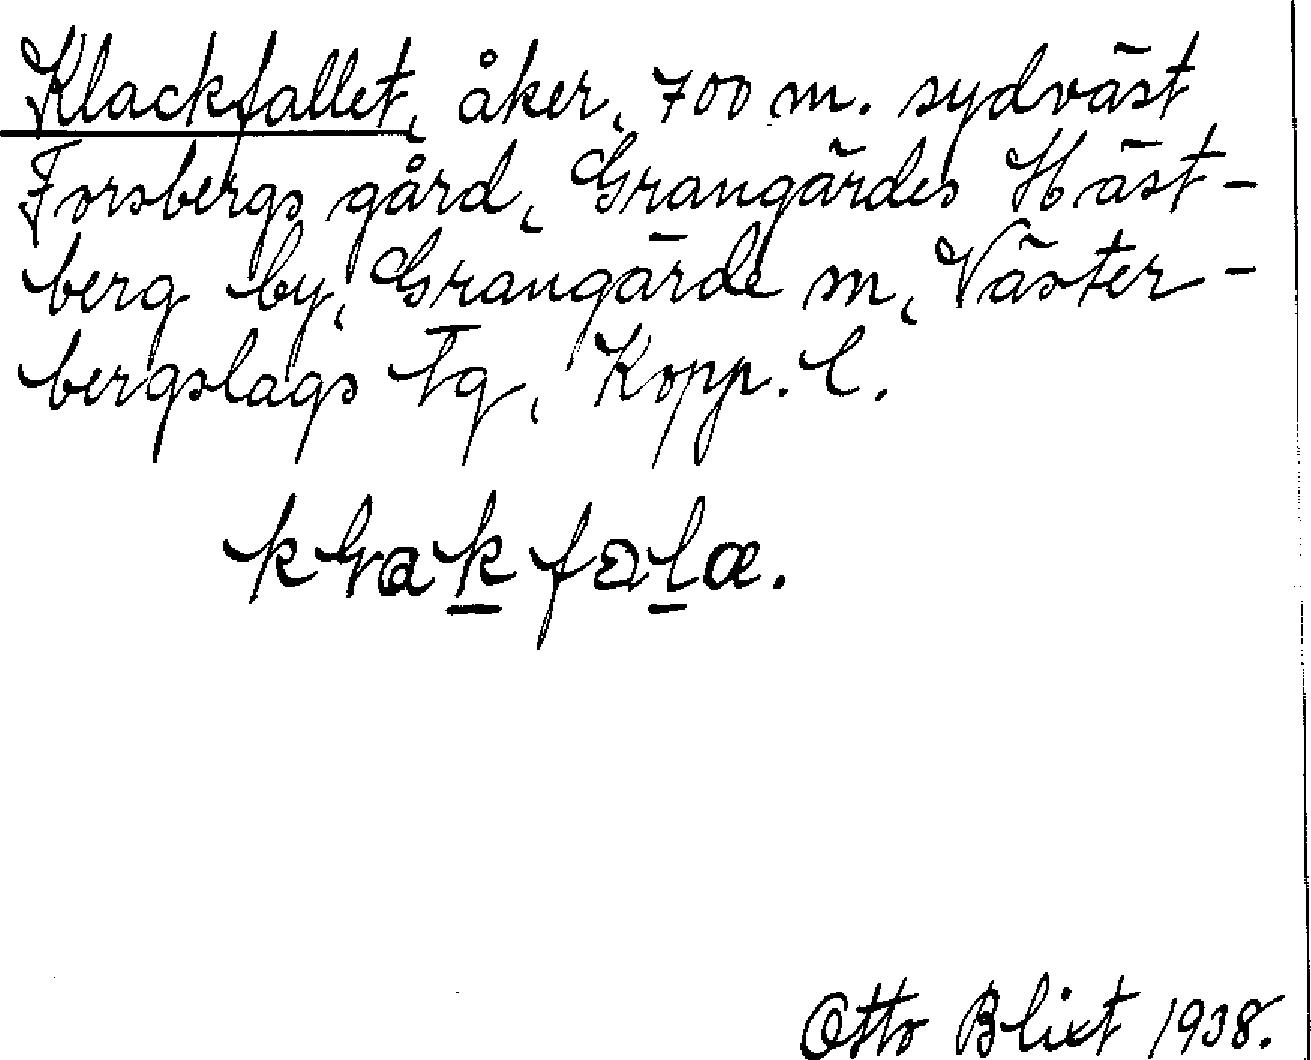 Klackfallet, åker, 700 m. sydväst
Forsbergs gård, Grangärdes Häst-
berg by, Grangärde sn, Väster-
bergslags Tg, Kopp. l.
Otto Blixt 1938.